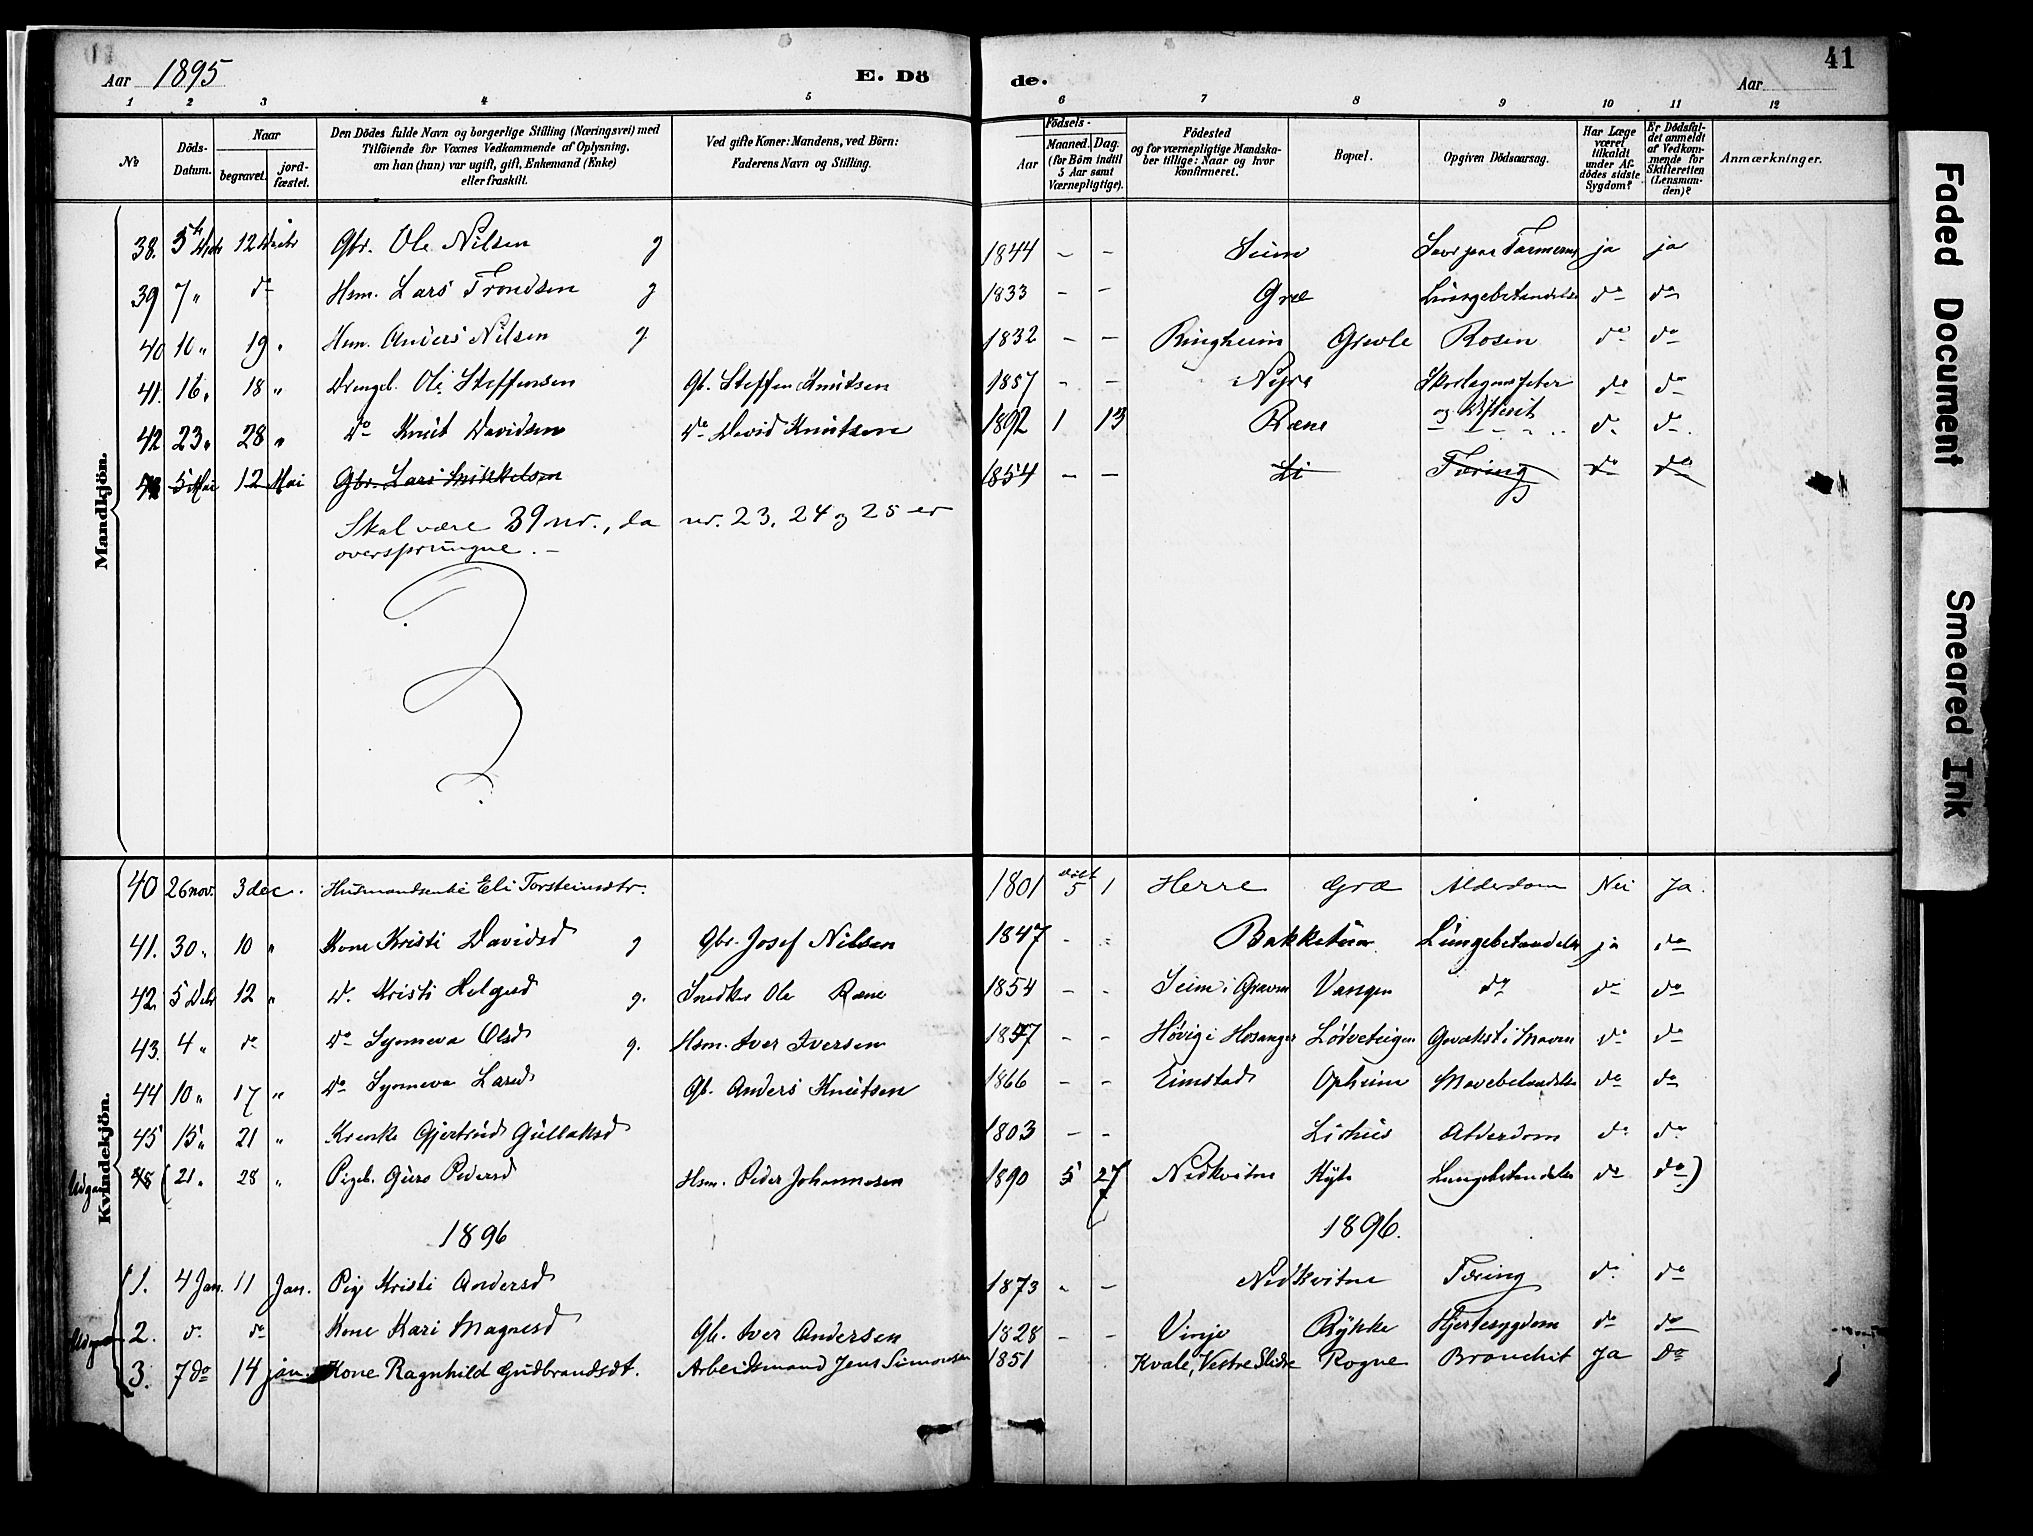 Aar 1895
E. Dö
de.
41
Aar
1 2 3 4 5 6 7 8 9 10 11 12
No
Döds-Datum.
Naar
begravet.
jord-fæstet.
Den Dödes fulde Navn og borgerlige Stilling (Næringsvei) med
Tilföiende for Voxnes Vedkommende af Oplysning,
om han (hun) var ugift, gift, Enkemand (Enke)
eller fraskilt.
Ved gifte Koner: Mandens, ved Börn:
Faderens Navn og Stilling.
Födsels-
Aar
Maaned. Dag.
(for Börn indtil
5 Aar samt
Værnepligtige).
Födested
og for værnepligtige Mandska-
ber tillige: Naar og hvor
konfirmeret.
Bopæl.
Opgiven Dödsaarsag.
Har Læge
været
tilkaldt
under Af-
dödes sidste
Sygdom?
Er Dödsfal-
det anmeldt
af Vedkom-
mende for
Skifteretten
(Lensman-
den)?
Anmærkninger.
Mandkjön.
38. 5te Decbr 12 Decbr Gbr. Ole Nilsen g 1844 - - Seim ja ja
39 7 " do Hsm. Lars Trondsen g 1833 - - Græ Lungebetændelse do do
40 10 " 19 " Hsm. Anders Nilsen g. 1832 - - Ringheim Grevle Rosen do do
41. 16 " 18 " Drengeb. Ole Steffensen Gb. Steffen Knutsen 1857 - - Nyre do do
42 23 " 28 " do Knut Davidsen do David Knutsen 1892 1 13 Ræne og Difterit do do
43 5 Mai 12 Mai Gbr. Lars Mikkelsen 1854 - - Li Tæring do do
Skal være 39 nr., da nr. 23, 24 og 25 er
oversprungne. -
Kvindekjön.
40 26 nov. 3 dec. Husmandsenke Eli Torsteinsdtr. 1801 døbt 5 1 Herre Græ Alderdom Nei Ja.
41. 30 " 10 " Kone Kristi Davidsd g Gbr. Josef Nilsen 1847 - - Bakketun Lungebetændelse ja do
42. 5 Decbr 12 " do Kristi Helgesd g. Snedker Ole Ræne 1854 - - Seim i Graven Vangen do do do
43. 4 " do do Synneva Olsd g. Hsm. Iver Iversen 1857 - - Høvig i Hosanger Lødveteigen Gvækst i Maven do do
44 10 " 17 " do Synneva Larsd Gb. Anders Knutsen 1866 - - Eimstad Opheim Mavebetændelse do do
45 15 " 21 " Gjertrud Gullaksd 1803 - - Lirhus Alderdom do do
(21 " 28 " Pigeb. Guro Pedersd Hsm. Peder Johannesen 1890 5 27 Nedkvitne Kyte Lungebetændelse do do)
1896
1896.
1. 4 Jan. 11 Jan. Pige Kristi Andersd 1873 - - Nedkvitne Tæring do do
2. do do Kone Kari Magnesd Gb. Iver Andersen 1828 - - Vinje Rykke Hjertesygdom do do
3. 7 do 14 jan. Kone Ragnhild Gudbrandsdt. Arbeidsmand Jens Simonsen 1851 Kvale, Vestre Slidre Rogne Bronchit Ja Do
Faded Document
Smeared Ink